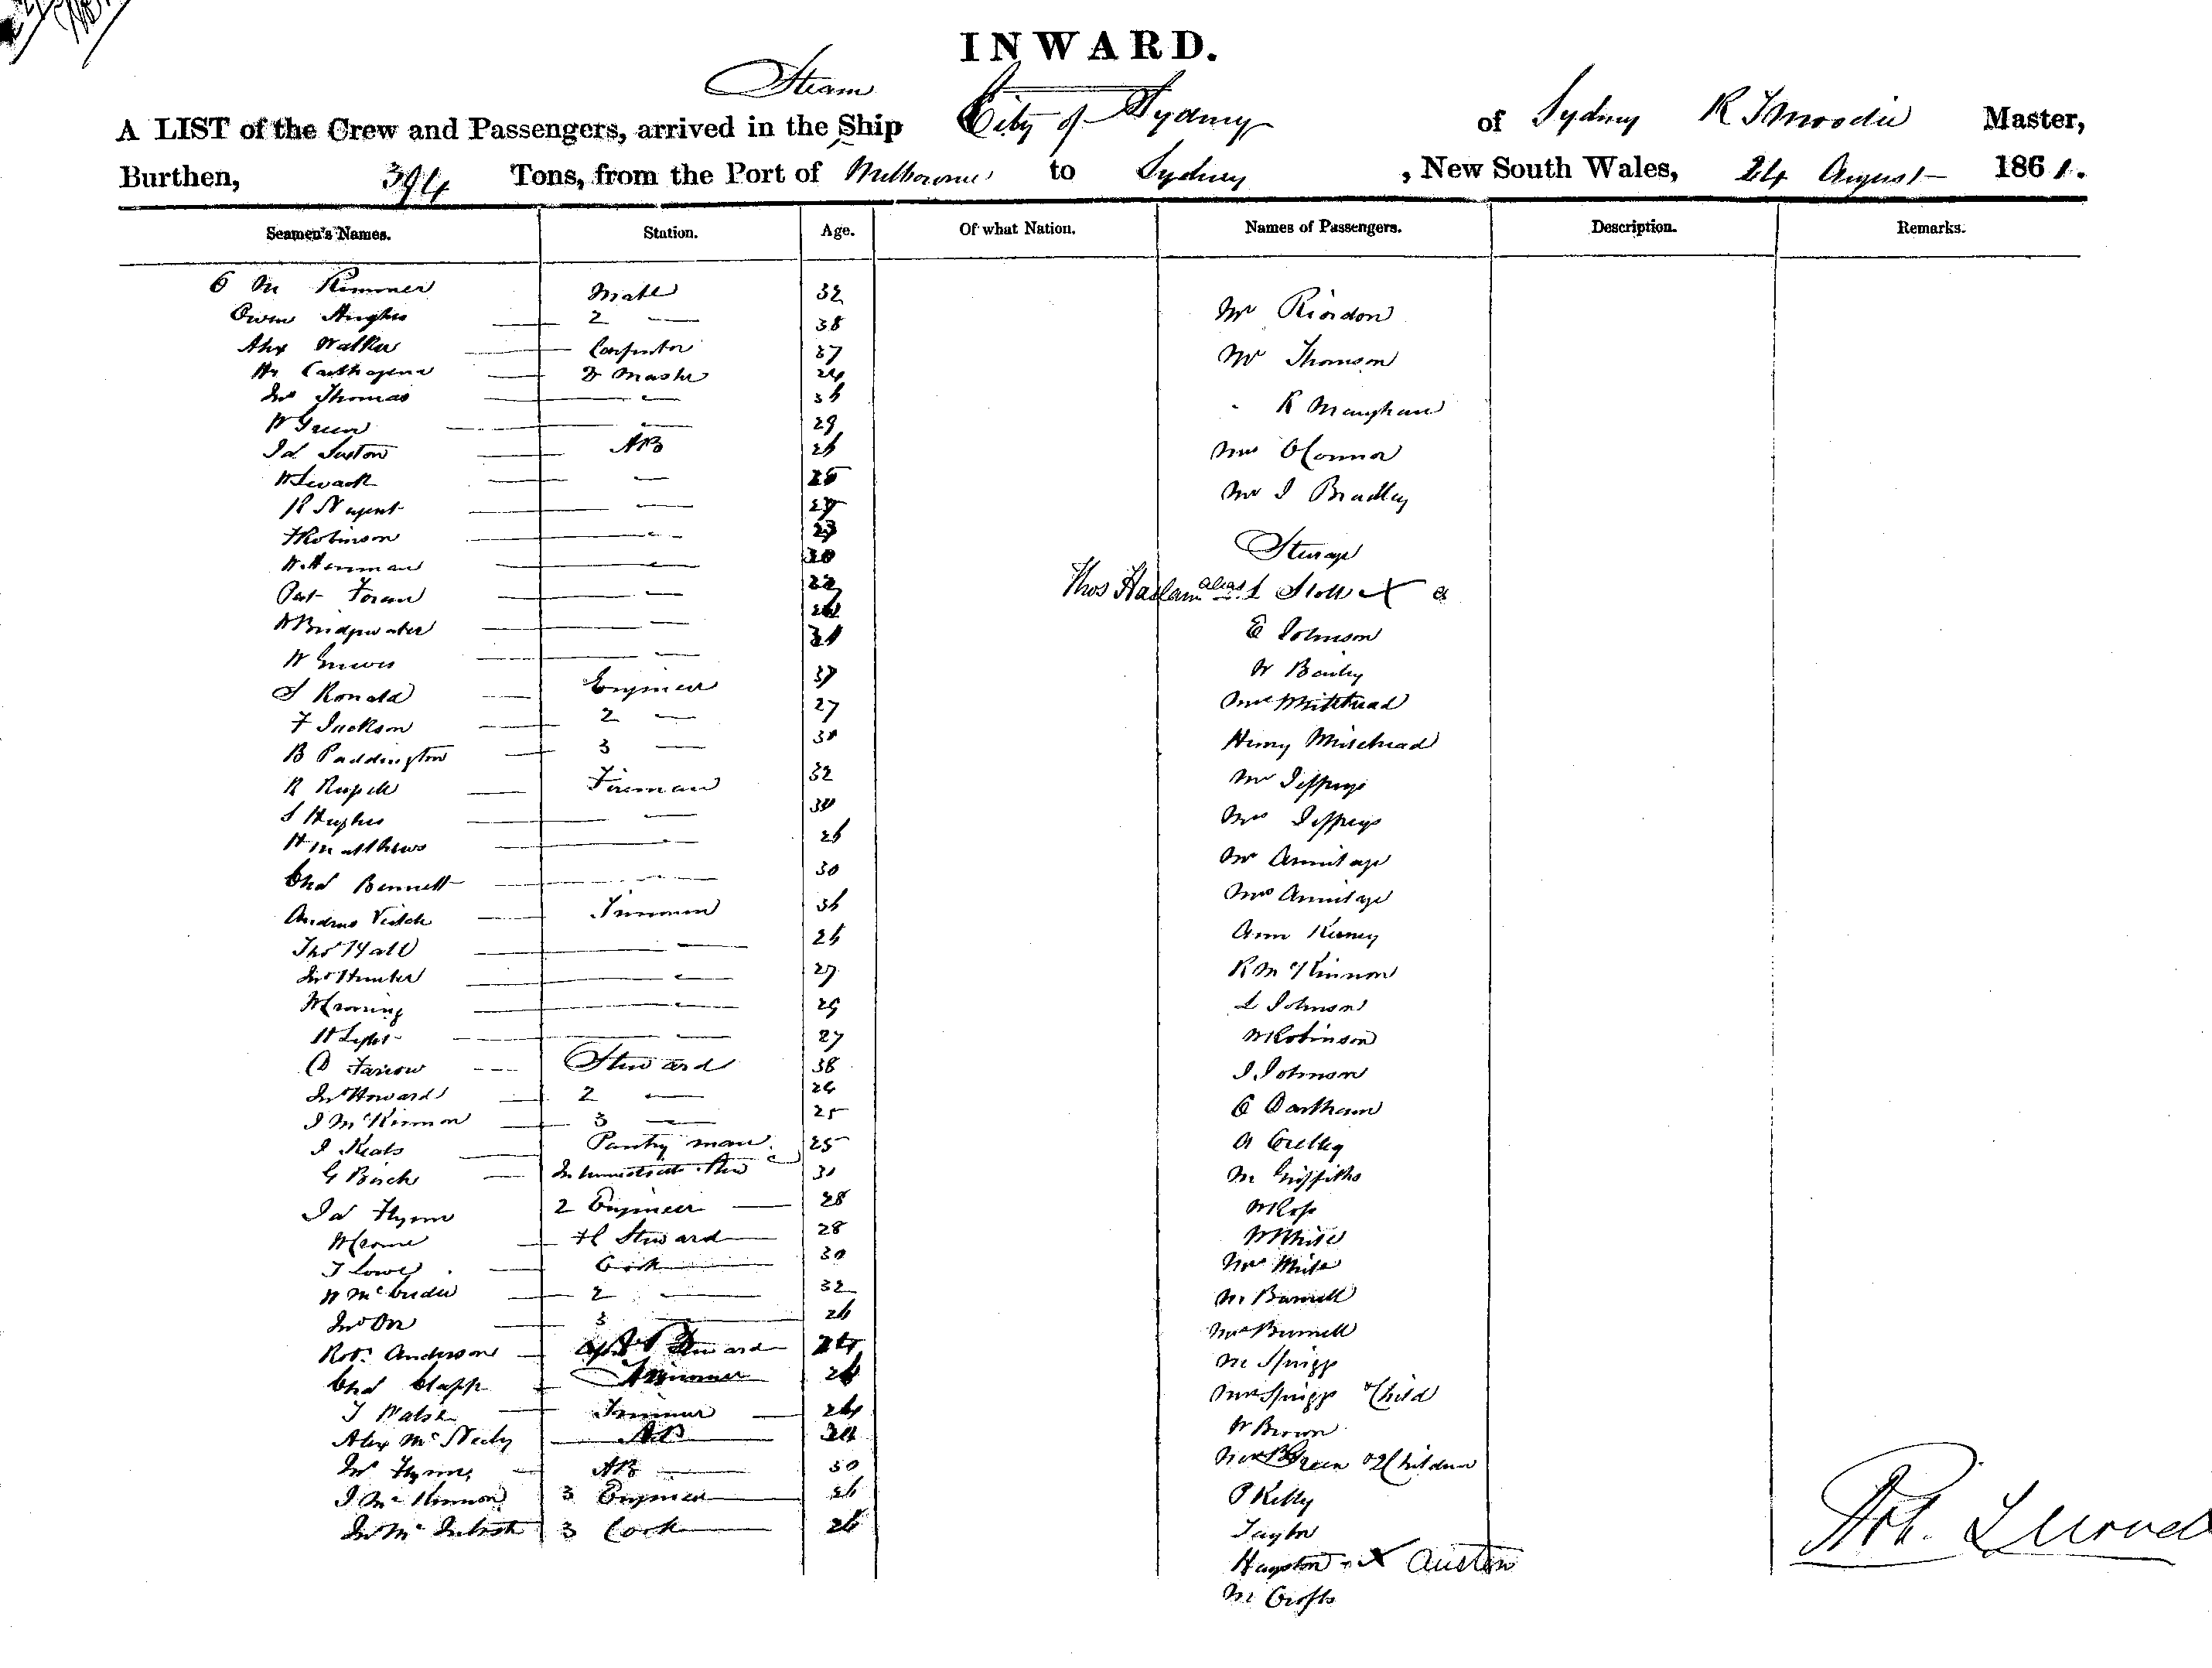 INWARD.
Steam
A LIST of the Crew and Passengers, arrived in the Ship City of Sydney of Sydney R T Moodie Master,
Burthen, 394 Tons, from the Port of Melbourne to Sydney, New South Wales, 24 August 1861.
Seamen's Names. Station. Age. Of what Nation. Names of Passengers. Description. Remarks.
M Rimmer Mate 32
Owen Hughes — 2 — 38
Alex Walker — Carpenter 37
Hy Carthagena — Master 24
Jno Thomas — 36
W Green — 29
Jas — AB 26
W Levack — 25
R Nugent —
F Robinson —
W Herriman — 30
Pat Foran — 22
W Bridgwater —
W Greeves — 31
J Ronald — Engineer 37
F Jackson — 2 — 27
B Paddington — 3 — 30
R Russell — Fireman 32
J Hughes — 30
H Matthews — 26
Chas Bennett — 30
Andrew Veitch — Trimmer 36
Thos Hall — 26
Jno Hunter — 27
— 29
H Light — 27
D Farrow --- Steward 38
Jno Howard — 2 — 24
J McKinnon — 3 — 25
J Keats — Pantry man 25
G Birch — Intermediate Stew 30
Jas Flynn 2 Engineer — 28
W Crome — Steward — 28
T Lowe — Cook — 30
W McCredie — 2 — 32
Jno Orr — 3 — 26
Robt Anderson — Steward — 24
Chas Clapp — Trimmer 26
T Walsh — Trimmer — 24
Alex McNeily — AB — 34
Jno Flynn — AB — 30
J McKinnon 3 Engineer — 26
Jno McIntosh 3 Cook — 26
Mr Riordon
Mr Thomson
" R Maughan
Mrs O'Connor
Mr J Bradley
Steerage
Thos Haslam alias L Stott X
E Johnson
W Bailey
Mrs Whitehead
Henry Whitehead
Mr Jeffreys
Mrs Jeffreys
Mr Armitage
Mrs Armitage
Ann Kierney
R McKinnon
L Johnson
W Robinson
J Johnson
C Dartham
A Coelley
M Griffiths
W Ross
W White
Mrs White
Mr Burnell
Mrs Burnell
Mr Sprigg
Mrs Sprigg & Child
W Brown
Mrs Green & 2 Children
P Kelly
Taylor
Hayston X Austin
M Crofts